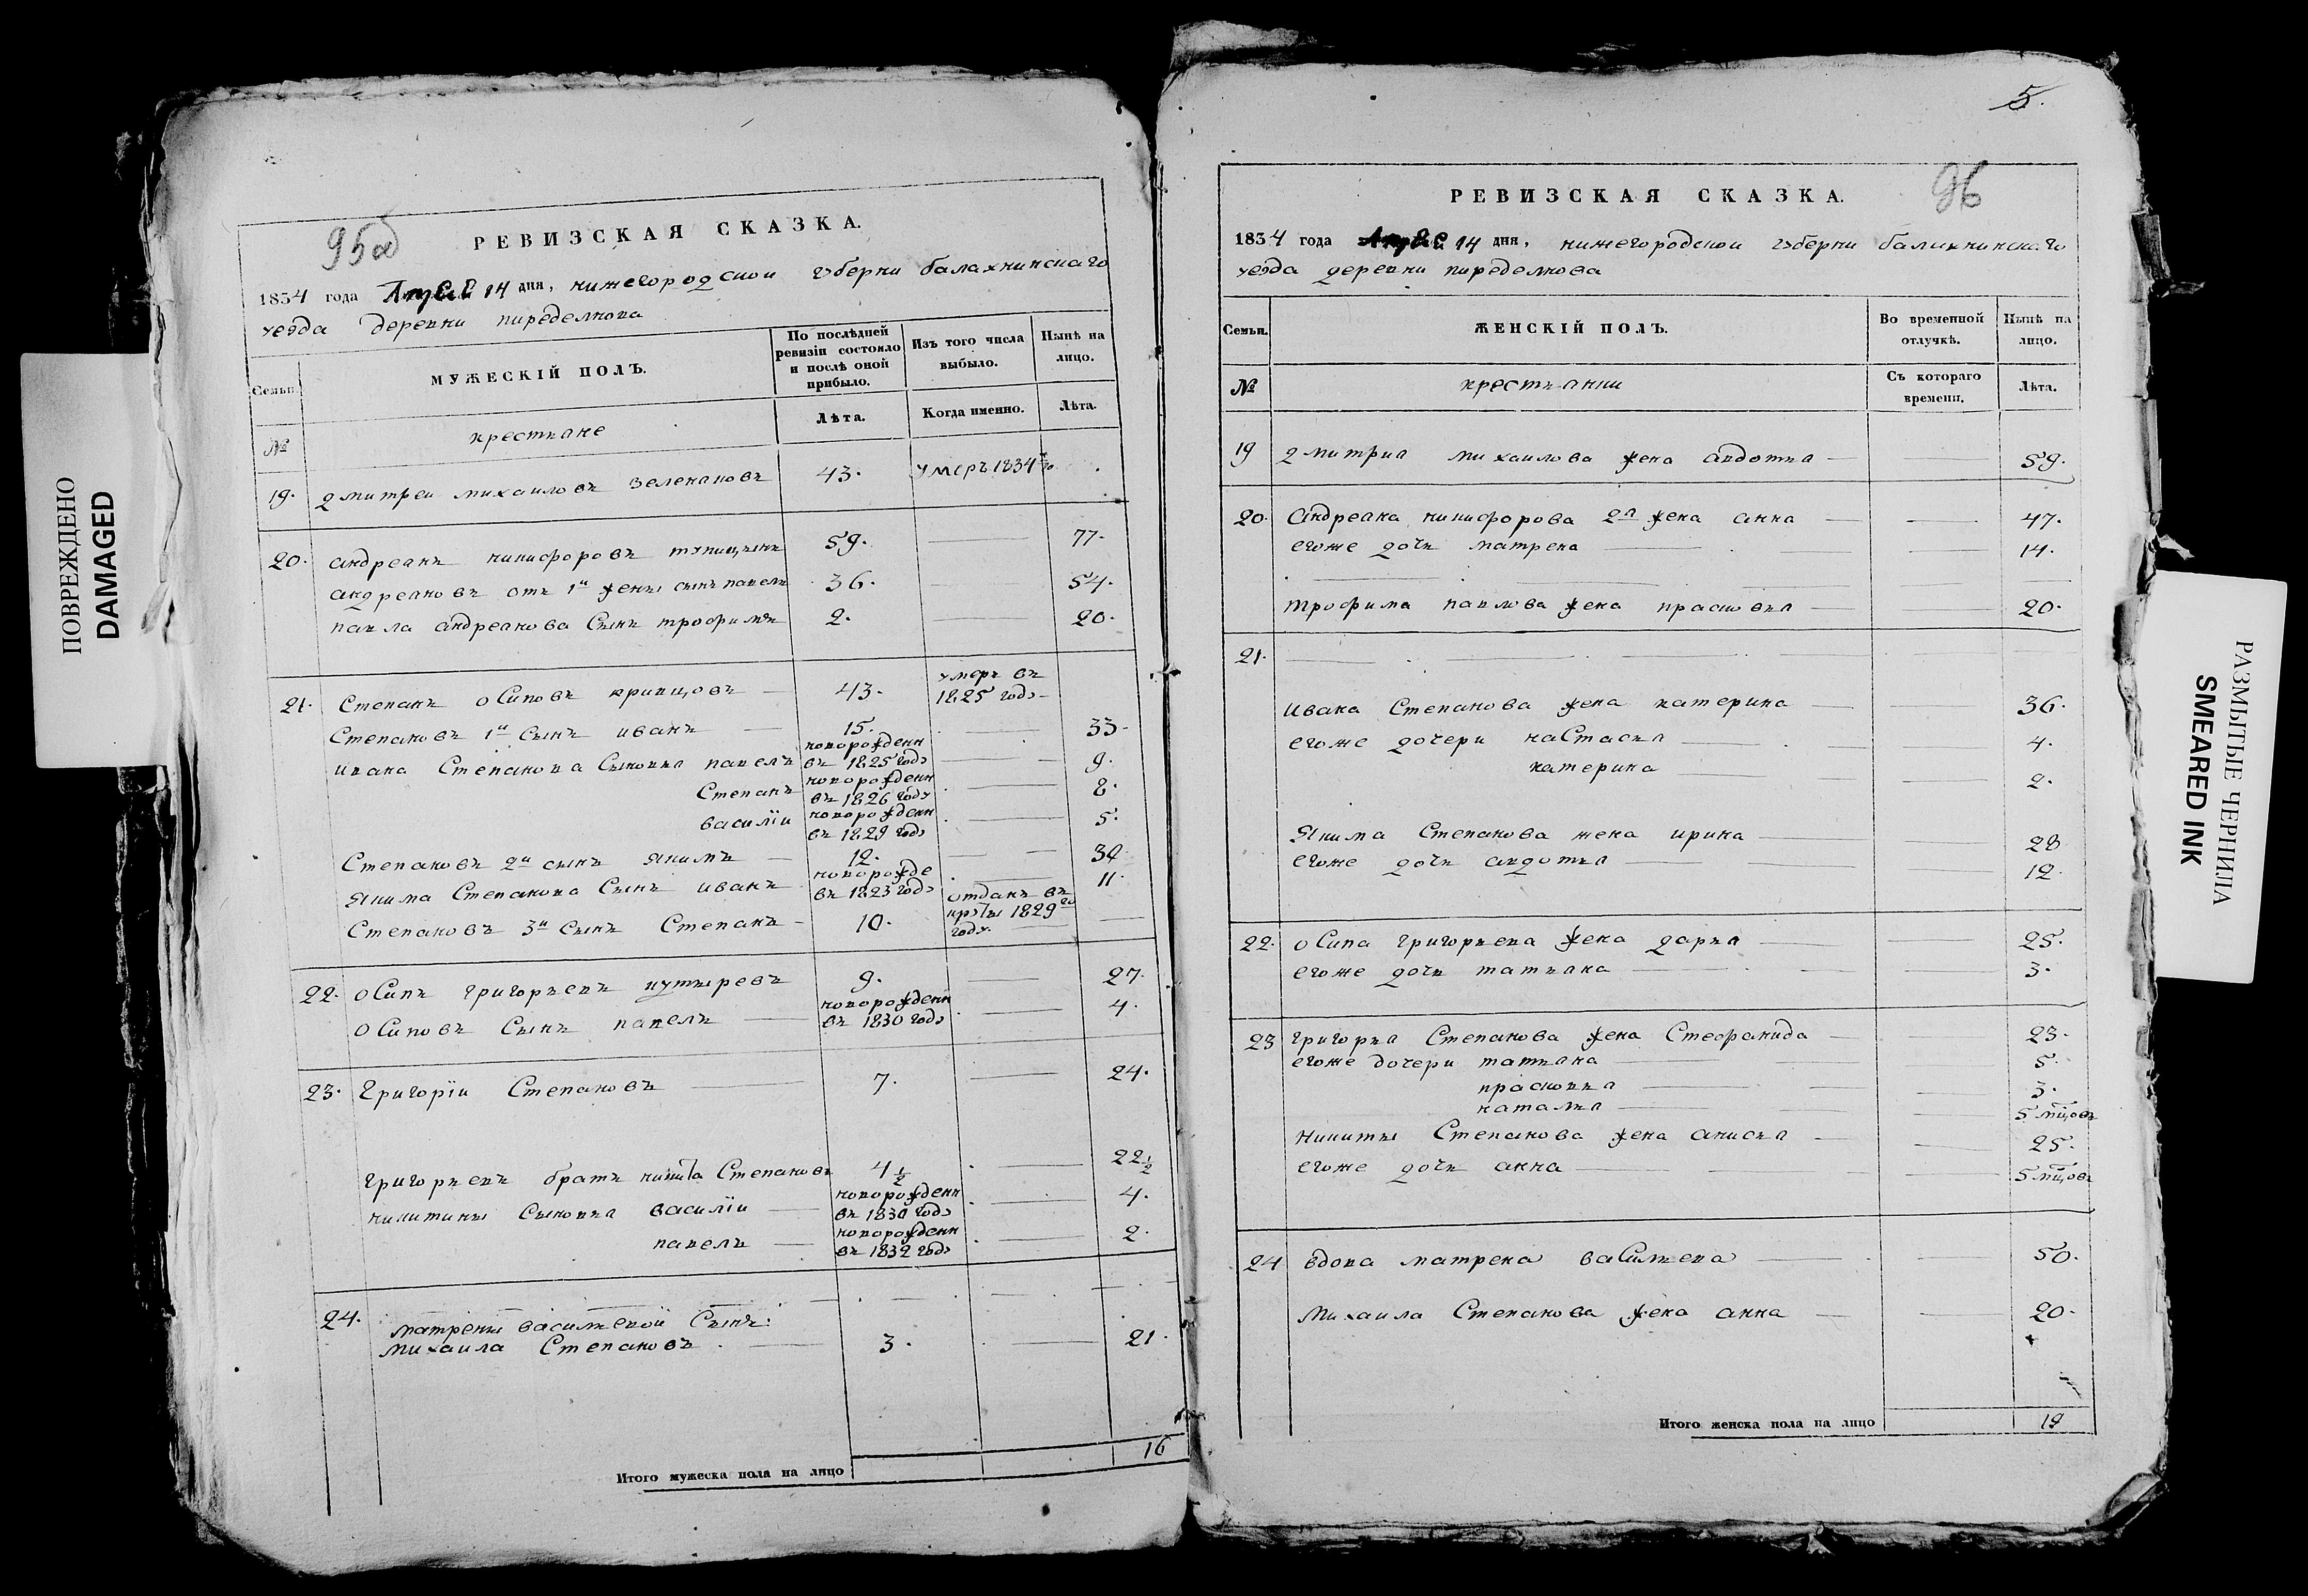 ПОВРЕЖДЕНО
DAMAGED
95об
РЕВИЗСКАЯ СКАЗКА.
1834 года Апреля 14 дня, нижегородской губерни балахнинскаго
уезда деревни пиределкова
Семьи.
МУЖЕСКІЙ ПОЛЪ.
По послѣдней ревизіи состояло и послѣ оной прибыло.
Изъ того числа выбыло.
Нынѣ на лицо.
№
крестьяне
Лѣта.
Когда именно.
Лѣта.
19. дмитреи михаиловъ зеленановъ 43. умеръ 1834 го
20. андреянъ никифоровъ 59. — 77.
андреяновъ отъ 1й жены сынъ павелъ 36. — 54.
павла андреянова Сынъ трофимъ 2. — 20.
21. Степанъ оСиповъ кривцовъ — 43. умеръ въ 1825 годѵ
Степановъ 1й Сынъ иванъ — 15. — 33.
ивана Степанова Сыновья павелъ новорожденн въ 1825 годѵ — 9.
Степанъ новорожденн въ 1826 годѵ — 8.
василїи новорожденн въ 1829 годѵ — 5.
Степановъ 2й сынъ якимъ — 12. — 30.
якима Степанова Сынъ иванъ новорожде въ 1823 годѵ — 11.
Степановъ 3й Сынъ Степанъ — 10. отданъ въ 1829 го годѵ. —
22. оСипъ григорьевъ кутыревъ 9. — 27.
оСиповъ Сынъ павелъ — новорожденн въ 1830 годѵ — 4.
23. Григорїи Степановъ — 7. — 24.
григорьевъ братъ никита Степановъ 4 1/2 — 22 1/2
никитины Сыновья василїи — новорожденн въ 1830 годѵ — 4.
павелъ — новорожденн въ 1832 годѵ — 2.
24. матрены васильевой Сынъ:
михаила Степановъ — 3. — 21.
Итого мужеска пола на лицо 16
5.
96
РЕВИЗСКАЯ СКАЗКА.
1834 года Апреля 14 дня, нижегородской губерни балахнинскаго
уезда деревни пиределкова
Семьи.
ЖЕНСКІЙ ПОЛЪ.
Во временной отлучкѣ.
Нынѣ на лицо.
№
крестьянки
Съ котораго времени.
Лѣта.
19 дмитрия михаилова жена авдотья — 59.
20. андреяна никифорова 2я жена анна — 47.
егоже дочь матрена — 14.
трофима павлова жена прасковья — 20.
21.
ивана Степанова жена катерина — 36.
егоже дочери наСтасья — 4.
катерина — 2.
якима Степанова жена ирина — 28
егоже дочь авдотья — 12.
22. оСипа григорьева жена дарья — 25.
егоже дочь татьяна — 3.
23 григорья Степанова жена Стефанида — 23.
егоже дочери татьяна — 5.
прасковья — 3.
наталья — 5 мцовъ
никиты Степанова жена анисья — 25.
егоже дочь анна — 5 мцовъ
24 вдова матрена ваСильева — 50.
михаила Степанова жена анна — 20.
Итого женска пола на лицо 19
РАЗМЫТЫЕ ЧЕРНИЛА
SMEARED INK